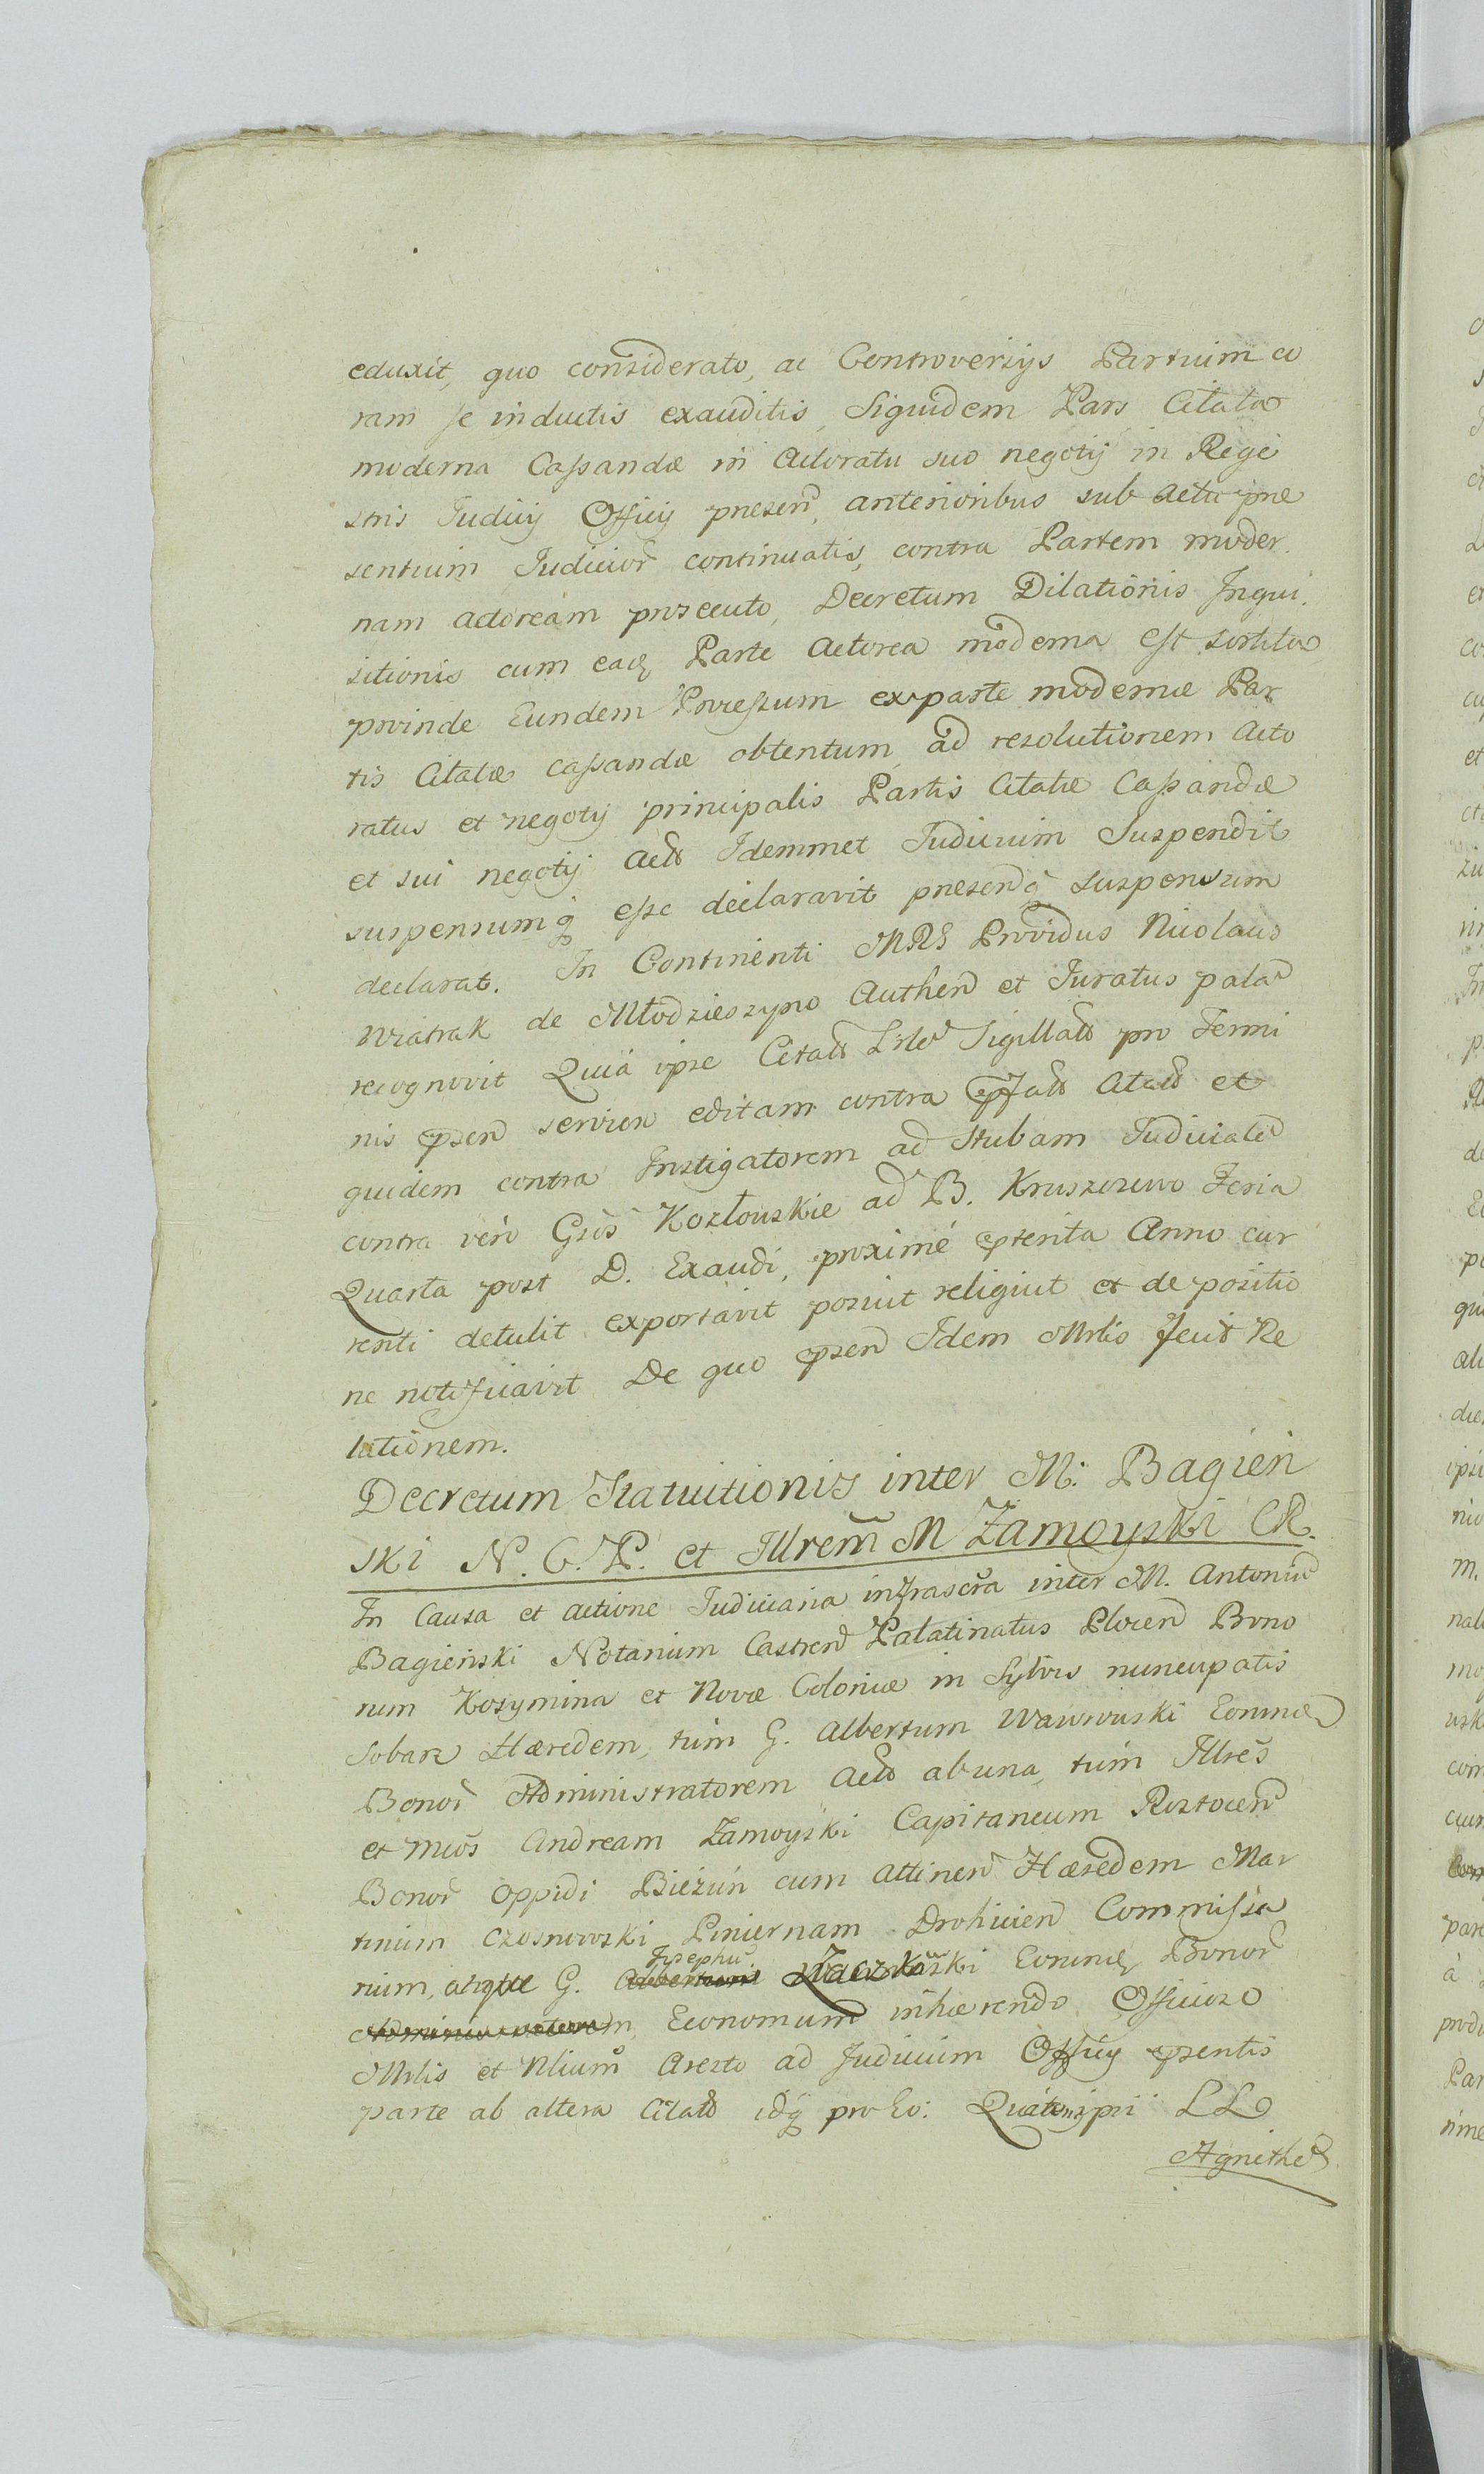 eduxit, quo considerato, ac Controversijs Partium co
ram se inductis exauditis, Siquidem Pars Citata
moderna Cassandæ in Actoratu suo negotij in Rege
stris Judicij Officij presen, anterioribus sub Actu præ
sentium Judicior continuatis, contra Partem moder
nam actoream prosecuto, Decretum Dilationis Inqui
sitionis cum eadq Parte Actorea moderna est sortita
proinde Eundem Processum ex parte modernæ Par
tis Citatæ cassandæ obtentum, ad resolutionem Acto
ratus et negotij principalis Partis Citatæ Cassandæ
et sui negotij Acto Idemmet Judicium Suspendit
suspensumq esse declaravit presendq suspensum
declarat. In Continenti MRS Providus Nicolaus
Wiatrak de Młodzieszyno Authen et Juratus pala
recognovit Quia ipse Citato Sigillato pro Termi
nis psen servien editam contra Citato et
quidem contra Instigatorem ad Stubam Judiciale
contra vero Gsos Kozłouskie ad B. Kruszewo Feria
Quarta post D. Exaudi, proximé pterita Anno cur
renti detulit exportavit posuit reliquit et de positio
ne notificavit De quo psen Idem Mrlis fecit Re
lationem.
Decretum Statuitionis inter M: Bagień
ski N. C. P. et Illrem M Zamoyski CR.
In Causa et actione Judiciaria infrascra inter M. Antoniu
Bagieński Notarium Castren Palatinatus Plocen Bono
rum Kosymina et Novæ Coloniæ in Sylvis nuncupatis
Sobarz Hæredem, tum G. Albertum Wawrowski Eorund
Bonor Administratorem Acto ab una, tum Illres
et Mcos Andream Zamoyski Capitaneum Rostocen
Bonor Oppidi Bieżuń cum attinen Hæredem Mar
tinum Czosnowski Pincernam Drohicien Commissa
rium, atque G. Josephu Eorundq Bonor
Economum inhærendo Officioso
Mrlis et Nlium Aresto ad Judicium Officij psentis
parte ab altera Citato idq pro Eo: Quatenus ipsi LL
Agnithe